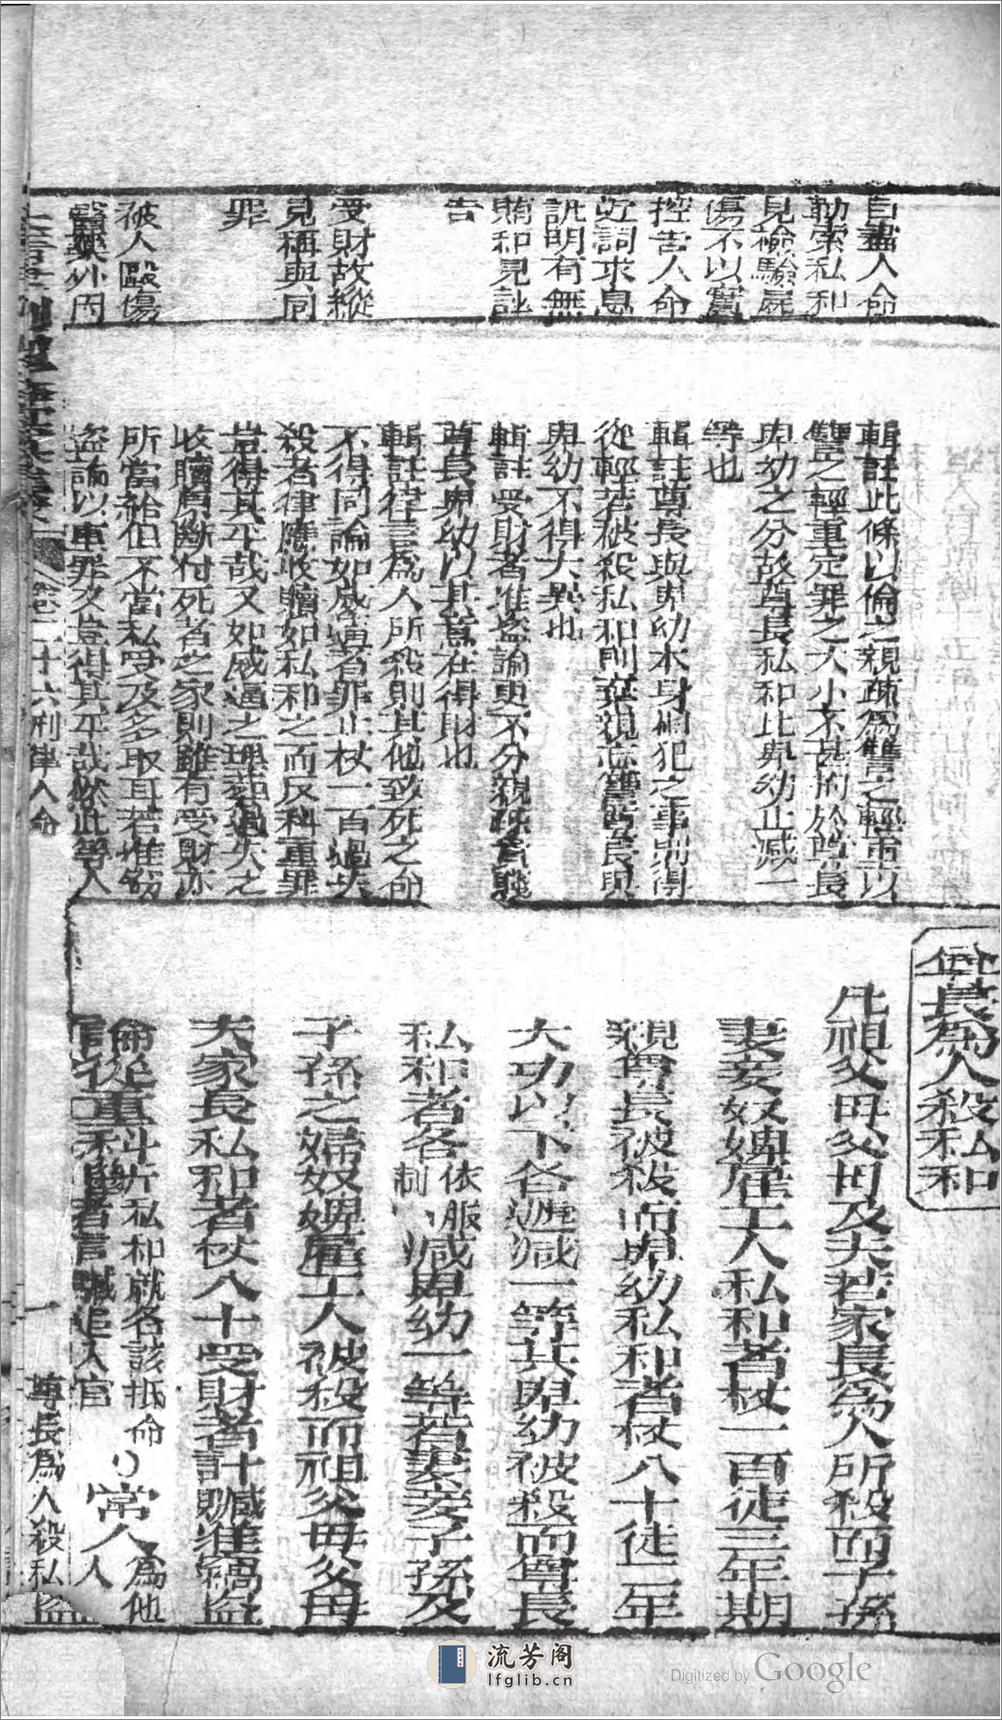 自盡人命
勒索私和
見檢驗屍
傷不以實
控告人命
近詞求息
訊明有無
賄和見誣
告
受財故縱
見稱與同
罪
被人毆傷
輯註此條以倫之親疎為讐之輕重以
讐之輕重定罪之大小不甚拘於尊長
卑幼之分故尊長私和比卑幼止減一
等也
輯註尊長與卑幼本身相犯之事則得
從輕若被殺私和則棄親忘讐尊長與
卑幼不得大異也
輯註受財者准盜論更不分親疎貴賤
尊長卑幼以其意在得財也
輯註律言為人所殺則其他致死之命
不得同論如威逼者罪止杖一百過失
殺者律應收贖如私和之而反科重罪
豈得其平哉又如威逼之埋葬過失之
收贖原斷付死者之家則雖有受財亦
所當給但不當私受及多取耳若准竊
盜論以重罪又豈得其平哉然此等人
尊長為人殺私和
凡祖父母父母及夫若家長為人所殺而子孫
妻妾奴婢雇工人私和者杖一百徒三年期
親尊長被殺而卑幼私和者杖八十徒二年
大功以下各遞減一等其卑幼被殺而尊長
私和者各依服制減卑幼一等若妻妾子孫及
子孫之婦奴婢雇工人被殺而祖父母父母
夫家長私和者杖八十受財者計贓准竊盜
論從重科斷私和就各該抵命
者言贓追入官
常人為他人
卷二十六刑律人命
一
尊長為人殺私
流芳阁
lfglib.cn
Digitized by Google